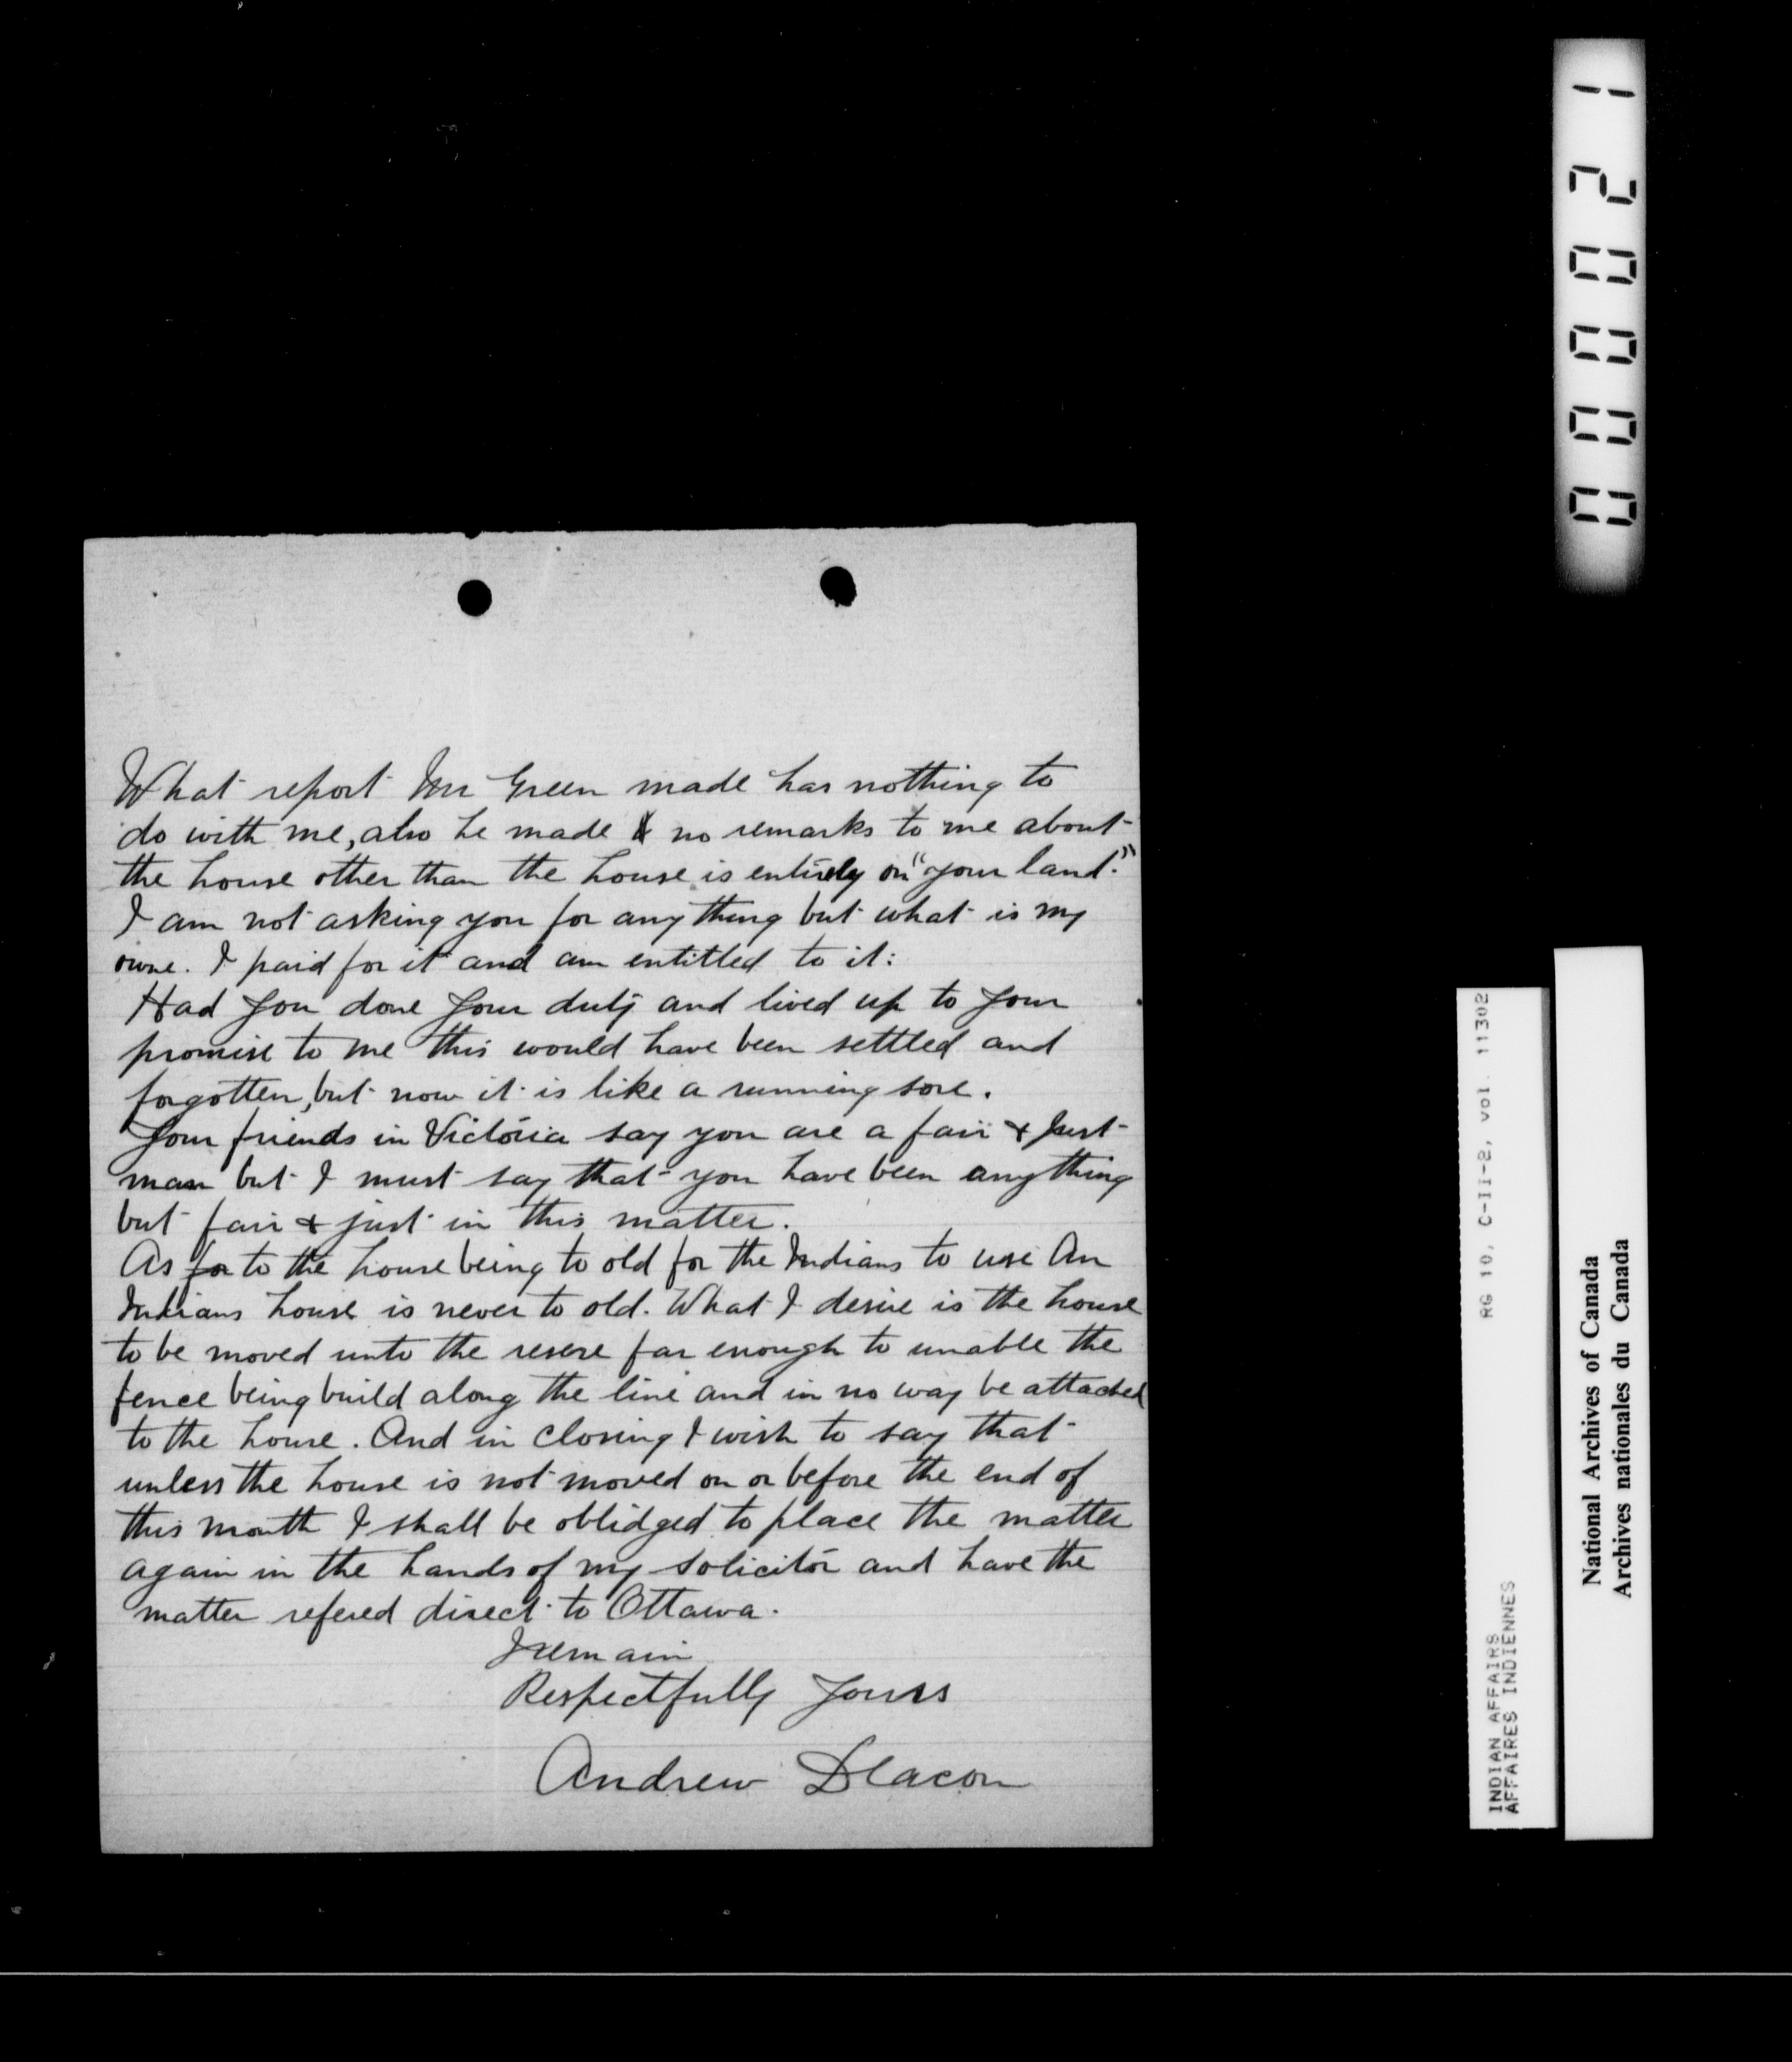 What report Mr Green made has nothing to
do with me, also he made no remarks to me about
the house other than the house is entirely on "your land."
I am not asking you for any thing but what is my
owne. I paid for it and am entitled to it:
Had You done Your duty and lived up to Your
promise to me this would have been settled and
forgotten, but now it is like a running sore.
Your friends in Victoria say you are a fair & Just
man but I must say that you have been anything
but fair & just in this matter.
As for to the house being to old for the Indians to use An
Indians house is never to old. What I desire is the house
to be moved unto the resere far enough to unable the
fence being build along the line and in no way be attached
to the house. And in closing I wish to say that
unless the house is not moved on or before the end of
this month I shall be oblidged to place the matter
again in the hands of my solicitor and have the
matter refered direct to Ottawa.
I remain
Respectfully Yours
Andrew Deacon
000021
RG 10, C-II-2, vol. 11302
INDIAN AFFAIRS
AFFAIRES INDIENNES
National Archives of Canada
Archives nationales du Canada